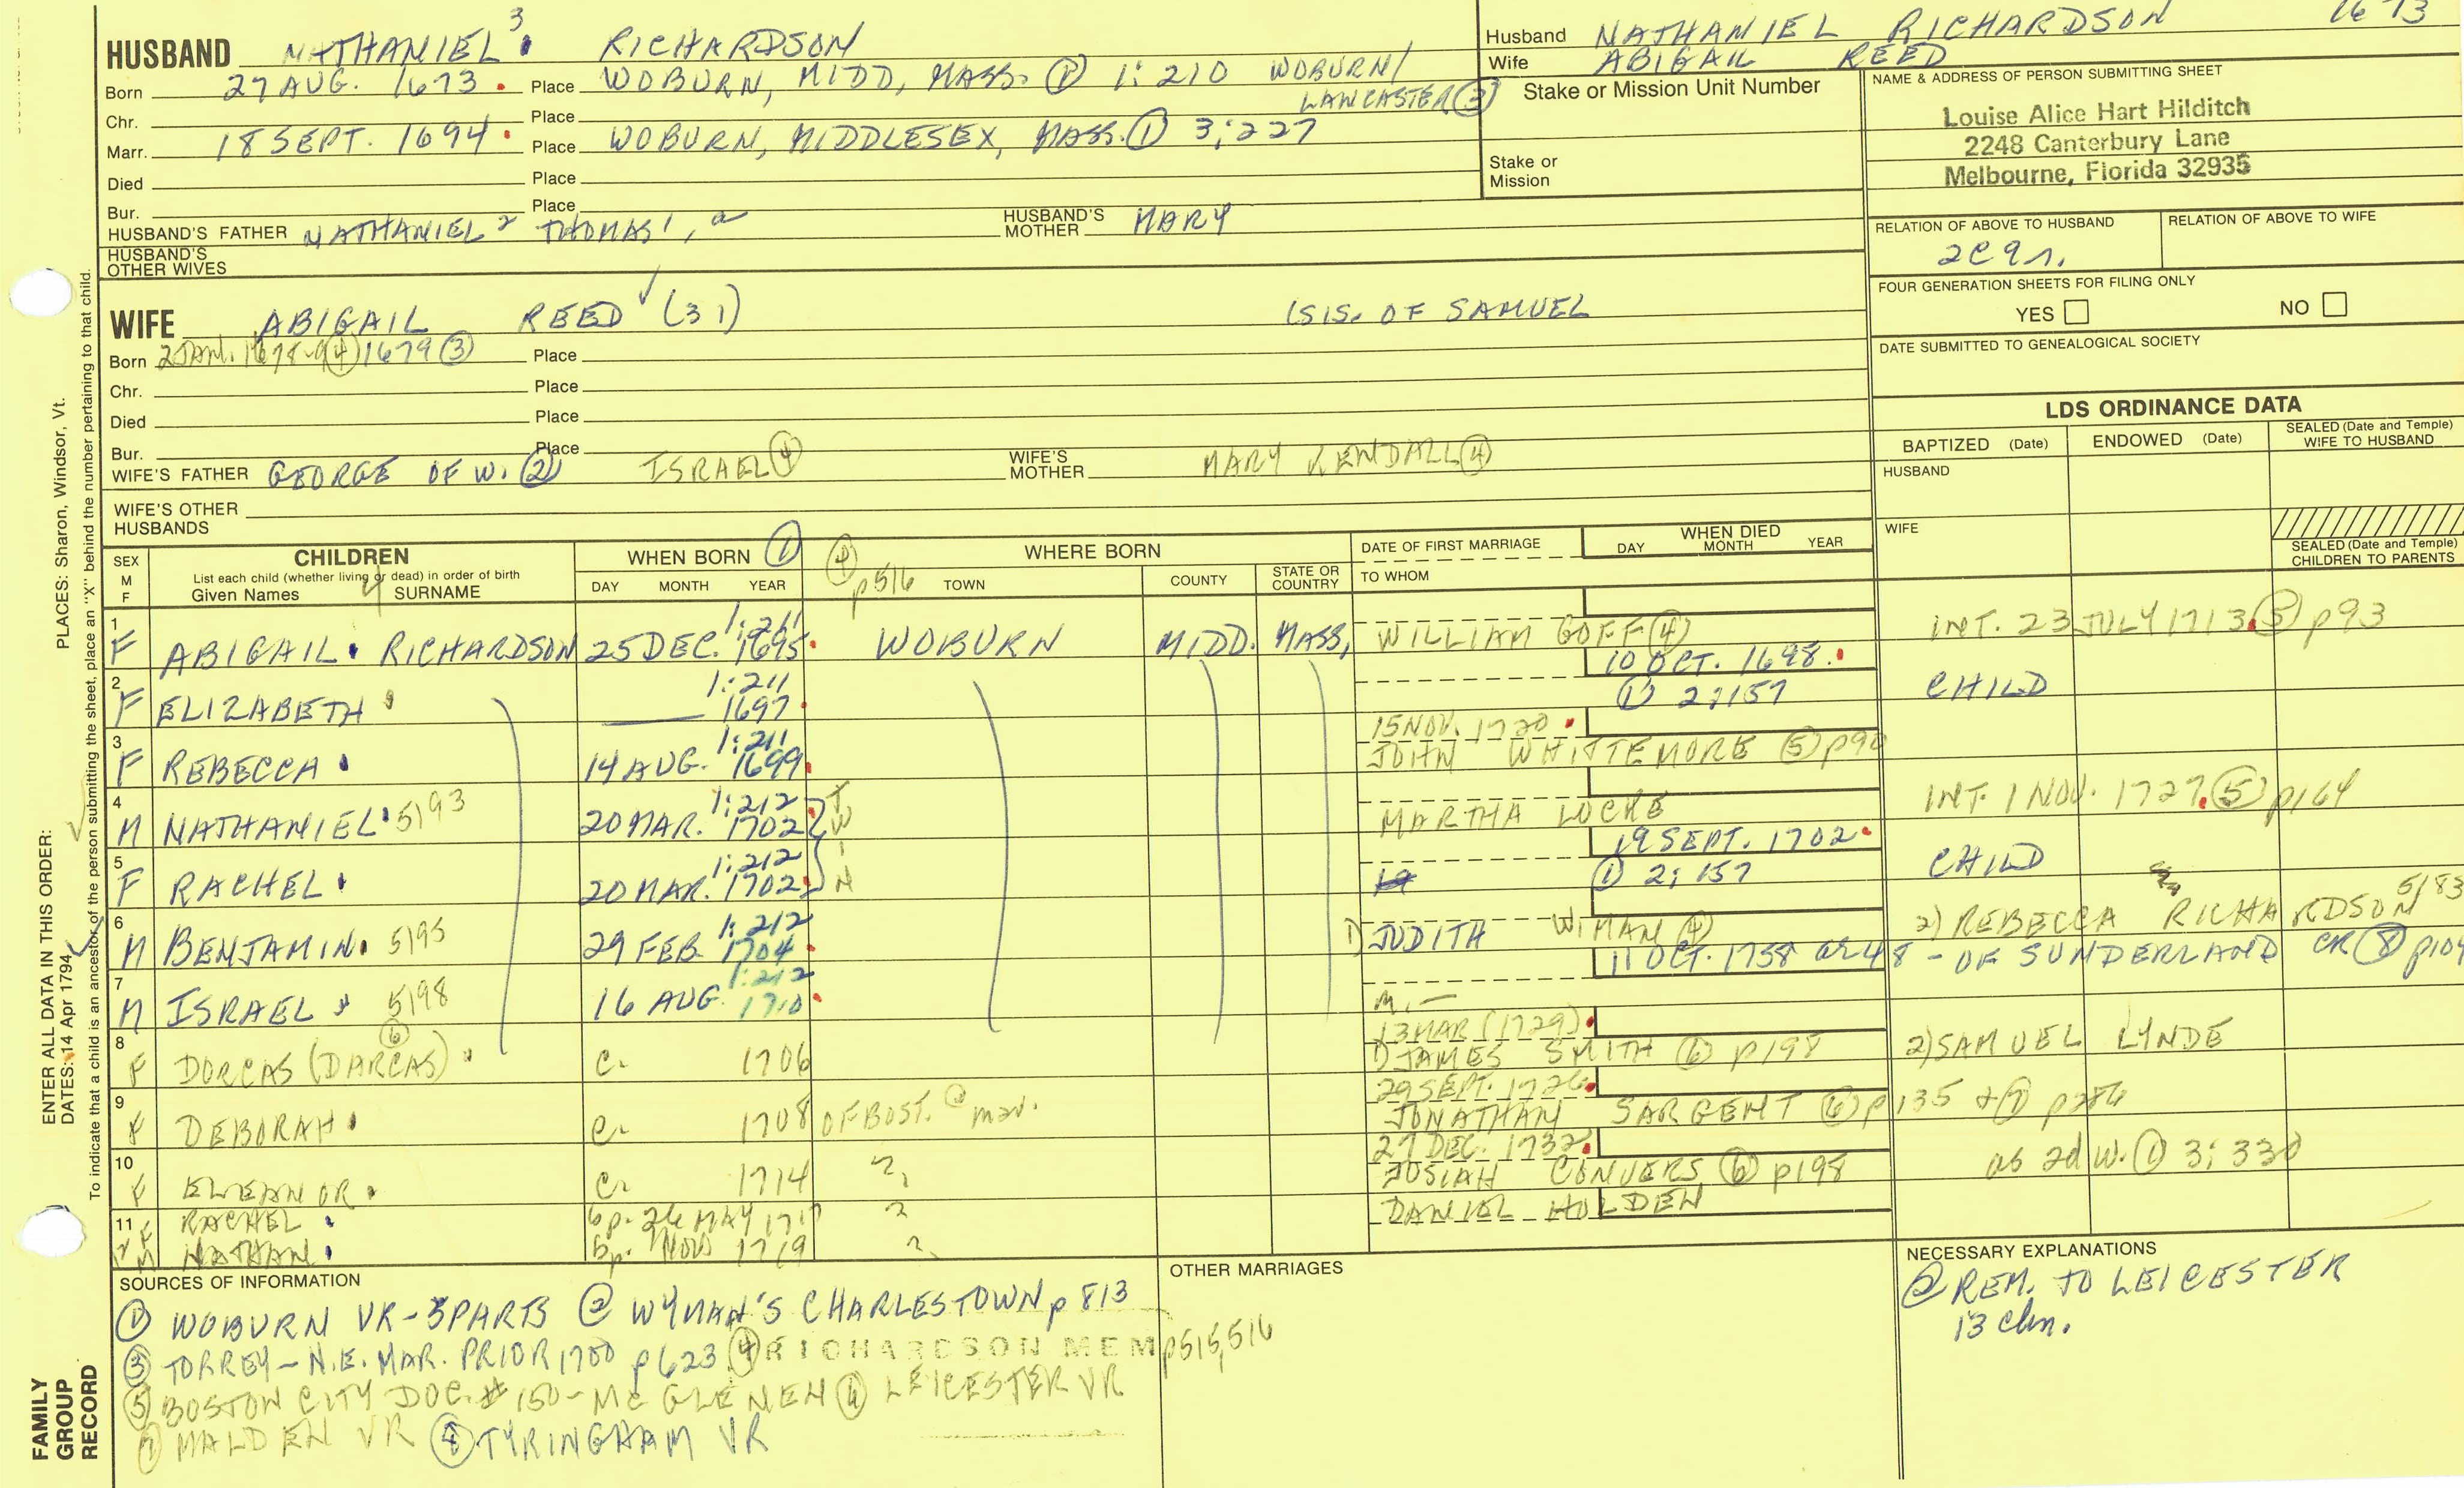 HUSBAND NATHANIEL 3 RICHARDSON
Born 27 AUG. 1673. Place WOBURN, MIDD, MASS. ① 1:210 WOBURN/
LANCASTER ③
Chr. Place
Marr. 18 SEPT. 1694. Place WOBURN, MIDDLESEX, MASS. ① 3:227
Died Place
Bur. Place
HUSBAND'S FATHER NATHANIEL 2 THOMAS 1, a HUSBAND'S MOTHER MARY
HUSBAND'S OTHER WIVES
Husband NATHANIEL RICHARDSON 1673
Wife ABIGAIL REED
Stake or Mission Unit Number
Stake or Mission
NAME & ADDRESS OF PERSON SUBMITTING SHEET
Louise Alice Hart Hilditch
2248 Canterbury Lane
Melbourne, Florida 32935
RELATION OF ABOVE TO HUSBAND RELATION OF ABOVE TO WIFE
FOUR GENERATION SHEETS FOR FILING ONLY
YES NO
DATE SUBMITTED TO GENEALOGICAL SOCIETY
WIFE ABIGAIL REED (31) (SIS. OF SAMUEL
Born 2 JAN. 1678-9 ④ 1679 ③ Place
Chr. Place
Died Place
Bur. Place
WIFE'S FATHER GEORGE OF W. ② ISRAEL ④ WIFE'S MOTHER MARY KENDALL ④
WIFE'S OTHER HUSBANDS
LDS ORDINANCE DATA
BAPTIZED (Date) ENDOWED (Date) SEALED (Date and Temple) WIFE TO HUSBAND
HUSBAND
WIFE
SEALED (Date and Temple) CHILDREN TO PARENTS
SEX M F
CHILDREN
List each child (whether living or dead) in order of birth
Given Names SURNAME
WHEN BORN ①
DAY MONTH YEAR
④ p516
WHERE BORN
TOWN COUNTY STATE OR COUNTRY
DATE OF FIRST MARRIAGE
TO WHOM
WHEN DIED
DAY MONTH YEAR
1 F ABIGAIL. RICHARDSON 25 DEC. 1:211 1695. WOBURN MIDD. MASS, WILLIAM GOFF ④ INT. 23 JULY 1713. ⑤ p93
2 F ELIZABETH 1:211 1697. 10 OCT. 1698. ① 2:157 CHILD
3 F REBECCA. 14 AUG. 1:211 1699. 15 NOV. 1720. JOHN WHITTEMORE ⑤ p90
4 M NATHANIEL. 5193 20 MAR. 1:212 1702 MARTHA LOCKE INT. 1 NOV. 1727. ⑤ p164
TWIN
5 F RACHEL. 20 MAR. 1:212 1702. 19 SEPT. 1702. ① 2:157 CHILD
6 M BENJAMIN. 5195 29 FEB. 1:212 1704. 1) JUDITH WIMAN ④ 2) REBECCA RICHARDSON 5183
7 M ISRAEL 5198 16 AUG. 1:212 1710. 11 OCT. 1758 or 48 - OF SUNDERLAND CR ⑧ p104
m. —
8 F DORCAS (DARCAS) ⑥ c. 1706 13 MAR (1729). 1) JAMES SMITH ⑥ p198 2) SAMUEL LYNDE
9 F DEBORAH. c. 1708 OF BOST. @ mar. 29 SEPT. 1726. JONATHAN SARGENT ⑥ p135 + ⑦ p286
10 F ELEANOR. c. 1714 ? 27 DEC. 1732. JOSIAH CONVERS ⑥ p198 as 2d w. ① 3:330
11 F RACHEL. bp. 26 MAY 1717 ? DANIEL HOLDEN
12 M NATHAN. bp. NOV 1719 ?
SOURCES OF INFORMATION
① WOBURN VR-3 PARTS ② WYMAN'S CHARLESTOWN p 813
③ TORREY-N.E. MAR. PRIOR 1700 p623 ④ RICHARDSON MEM p515,516
⑤ BOSTON CITY DOC. # 150-McGLENEN ⑥ LEICESTER VR
⑦ MALDEN VR ⑧ TYRINGHAM VR
OTHER MARRIAGES
NECESSARY EXPLANATIONS
@ REM. TO LEICESTER
13 chn.
ENTER ALL DATA IN THIS ORDER:
DATES: 14 Apr 1794 PLACES: Sharon, Windsor, Vt.
To indicate that a child is an ancestor of the person submitting the sheet, place an "X" behind the number pertaining to that child.
FAMILY
GROUP
RECORD